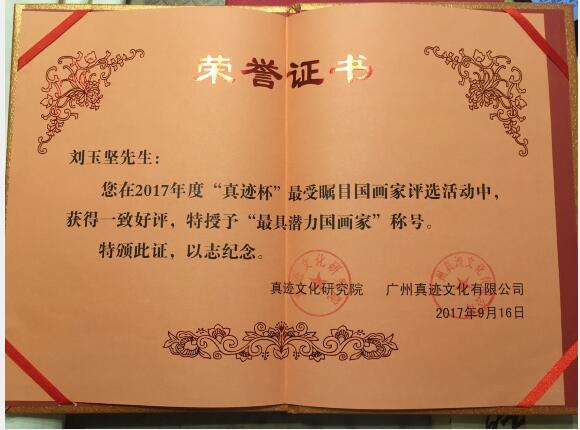 荣誉证书
刘玉坚先生：
您在2017年度“真迹杯”最受瞩目国画家评选活动中，
获得一致好评，特授予“最具潜力国画家”称号。
特颁此证，以志纪念。
真迹文化研究院 广州真迹文化有限公司
2017年9月16日